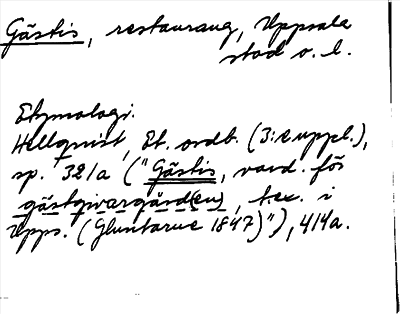 Gästis, restaurang, Uppsala
stad o. l.
Etymologi.
Hellquist, Et. ordb. (3:e uppl.),
sp. 321a ("Gästis, vard. för
gästgivargård(en), t.ex. i
Upps. (Gluntarne 1847)"), 414a.